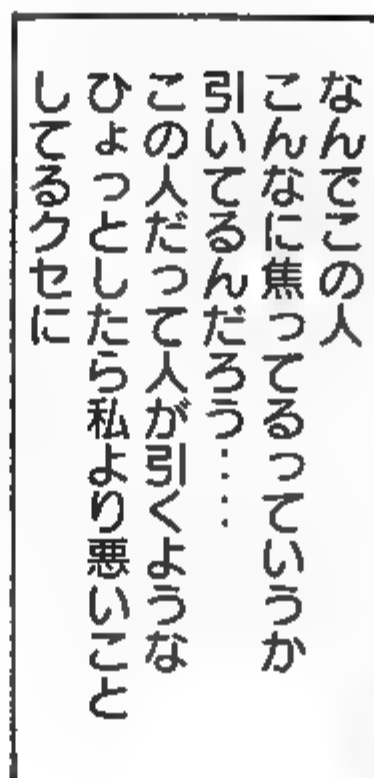 なんでこの人
こんなに焦ってるっていうか
引いてるんだろう・・・・
この人だって人が引くような
ひょっとしたら私より悪いこと
してるクセに